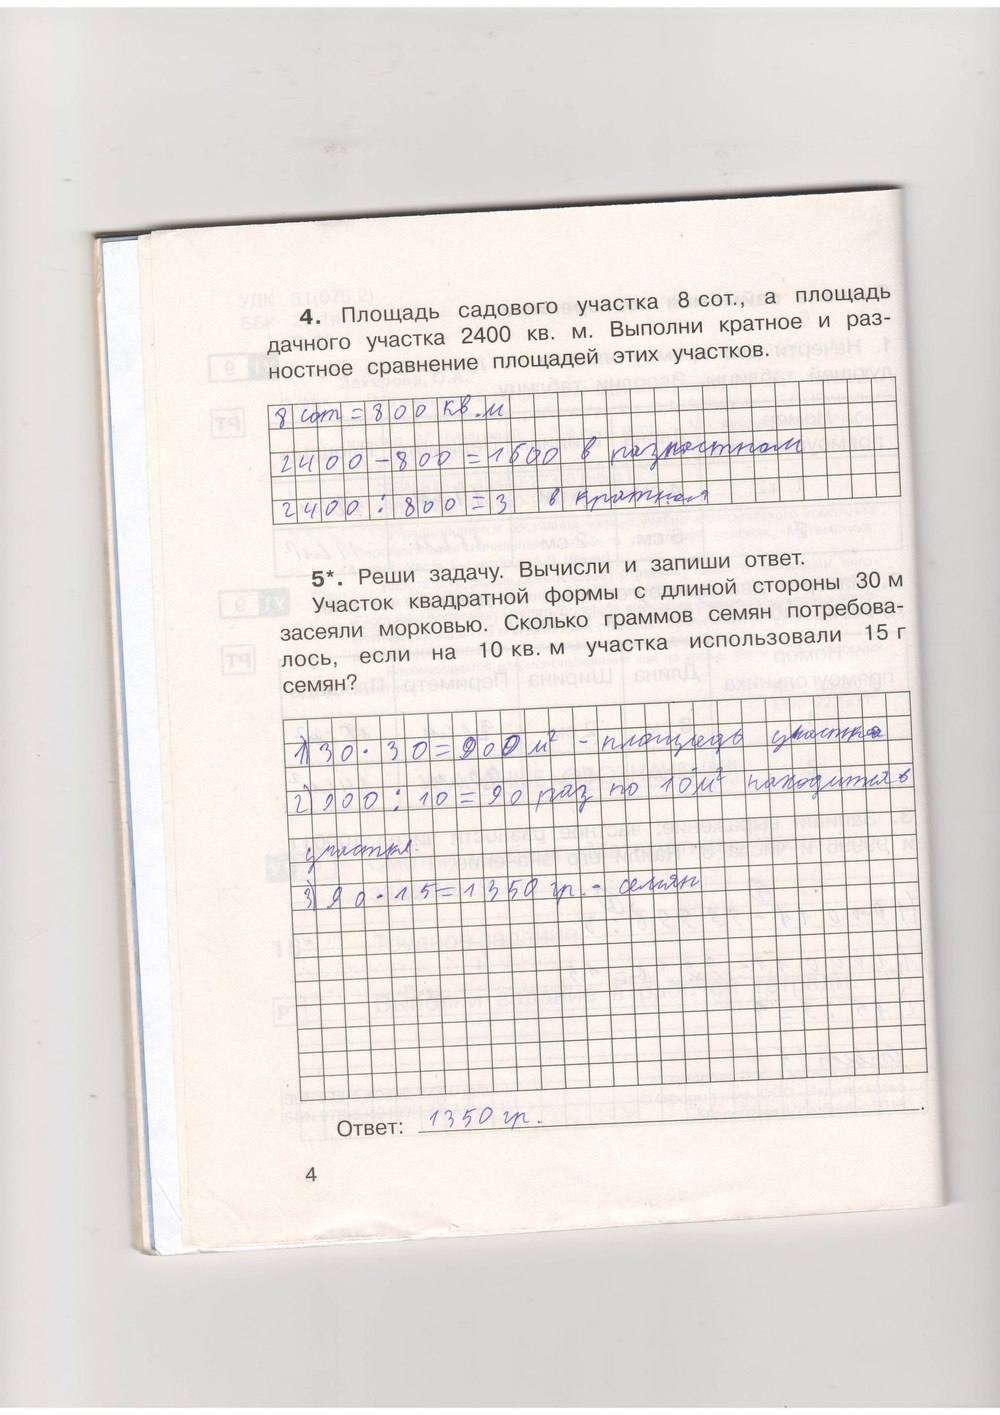 4. Площадь садового участка 8 сот., а площадь
дачного участка 2400 кв. м. Выполни кратное и раз-
ностное сравнение площадей этих участков.
8 сот = 800 кв.м
2400 - 800 = 1600 в разностном
2400 : 800 = 3 в кратном
5*. Реши задачу. Вычисли и запиши ответ.
Участок квадратной формы с длиной стороны 30 м
засеяли морковью. Сколько граммов семян потребова-
лось, если на 10 кв. м участка использовали 15 г
семян?
1) 30 · 30 = 900 м² - площадь участка
2) 900 : 10 = 90 раз по 10 м² находится в
участке.
3) 90 · 15 = 1350 гр. - семян
Ответ: 1350 гр.
4